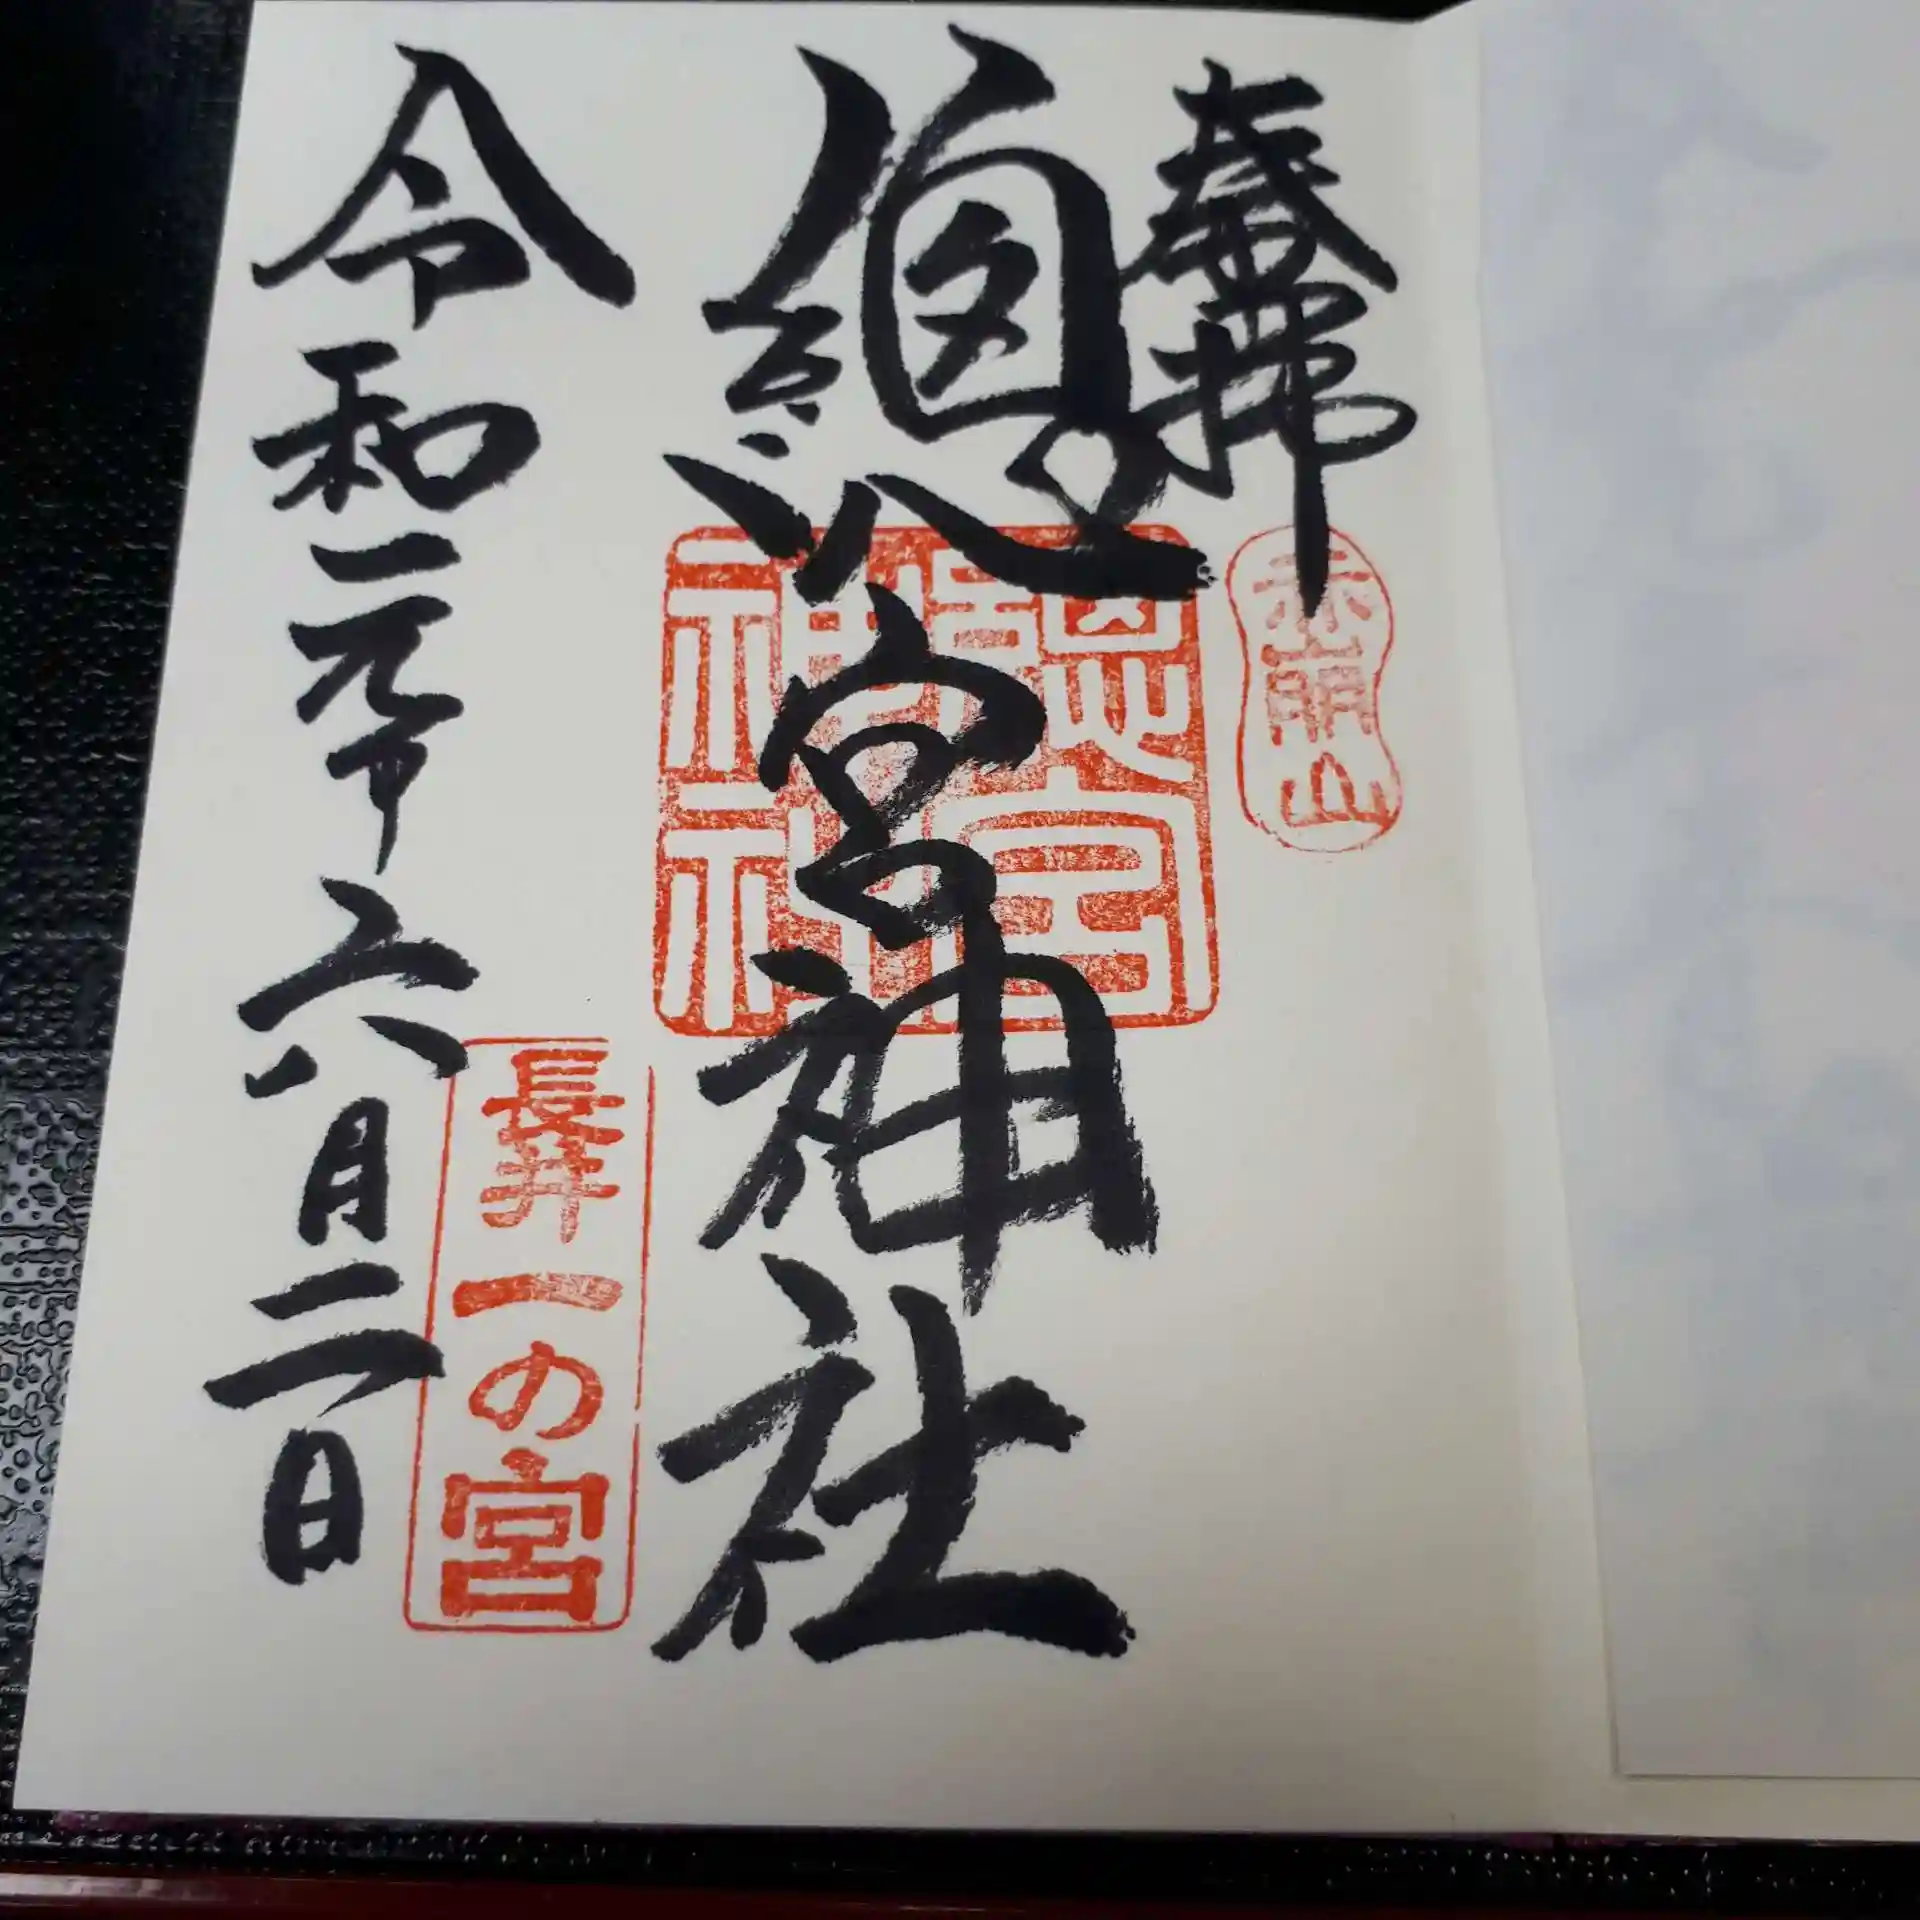 奉拝
赤崩山
總宮神社
總宮神社
令和元年六月二日
長井一の宮